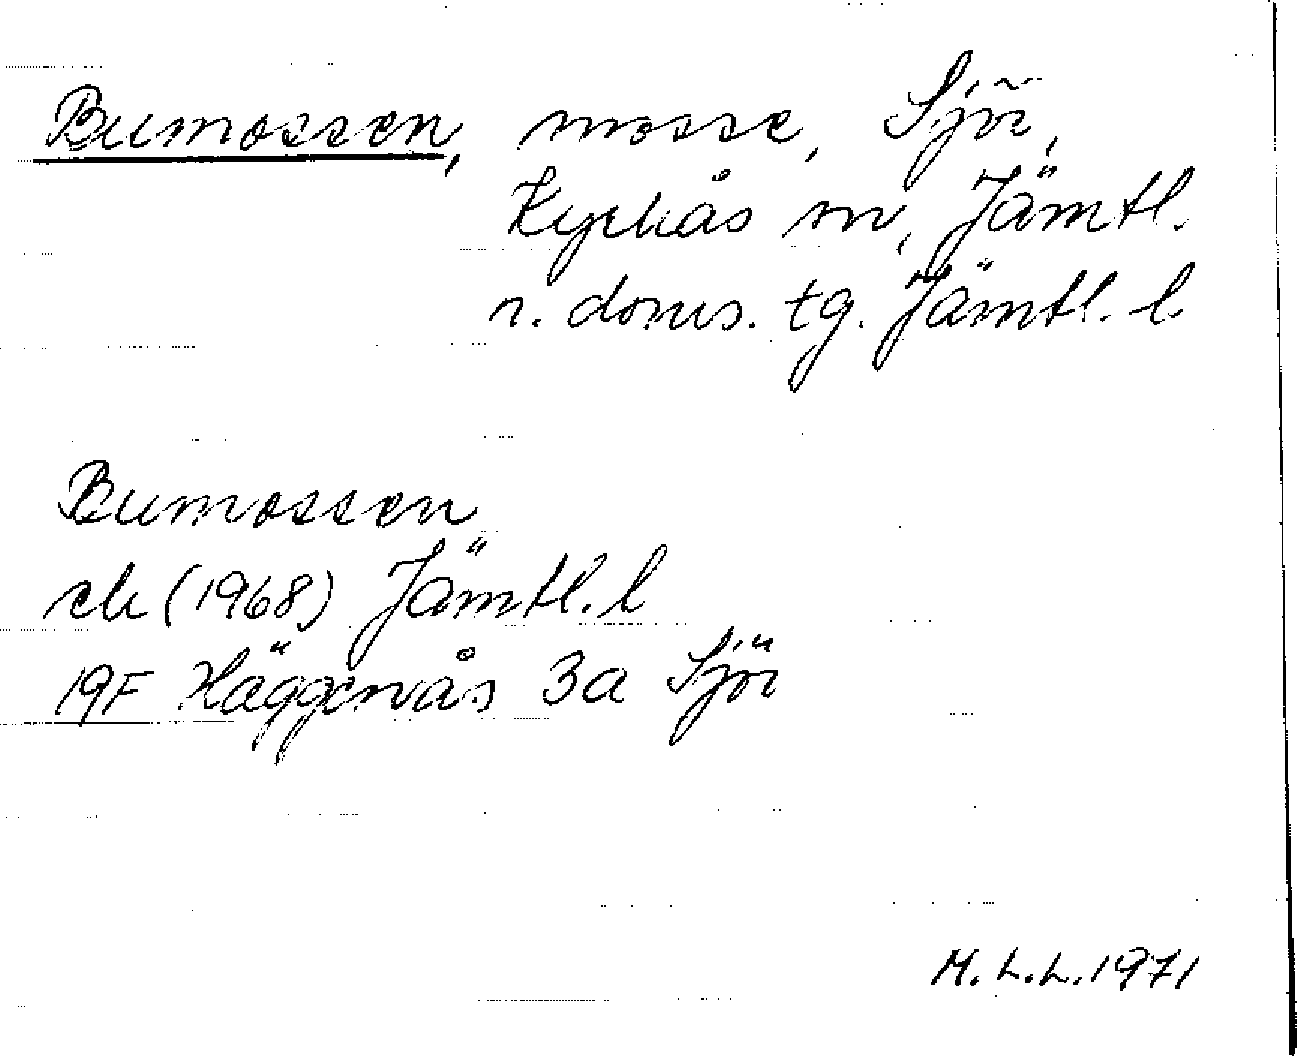 Bumossen, mosse, Sjör,
Kyrkås sn, Jämtl.
n. doms. tg. Jämtl. l
Bumossen
ek (1968) Jämtl. l
19F Häggenås 3a Sjör
M.L.L. 1971